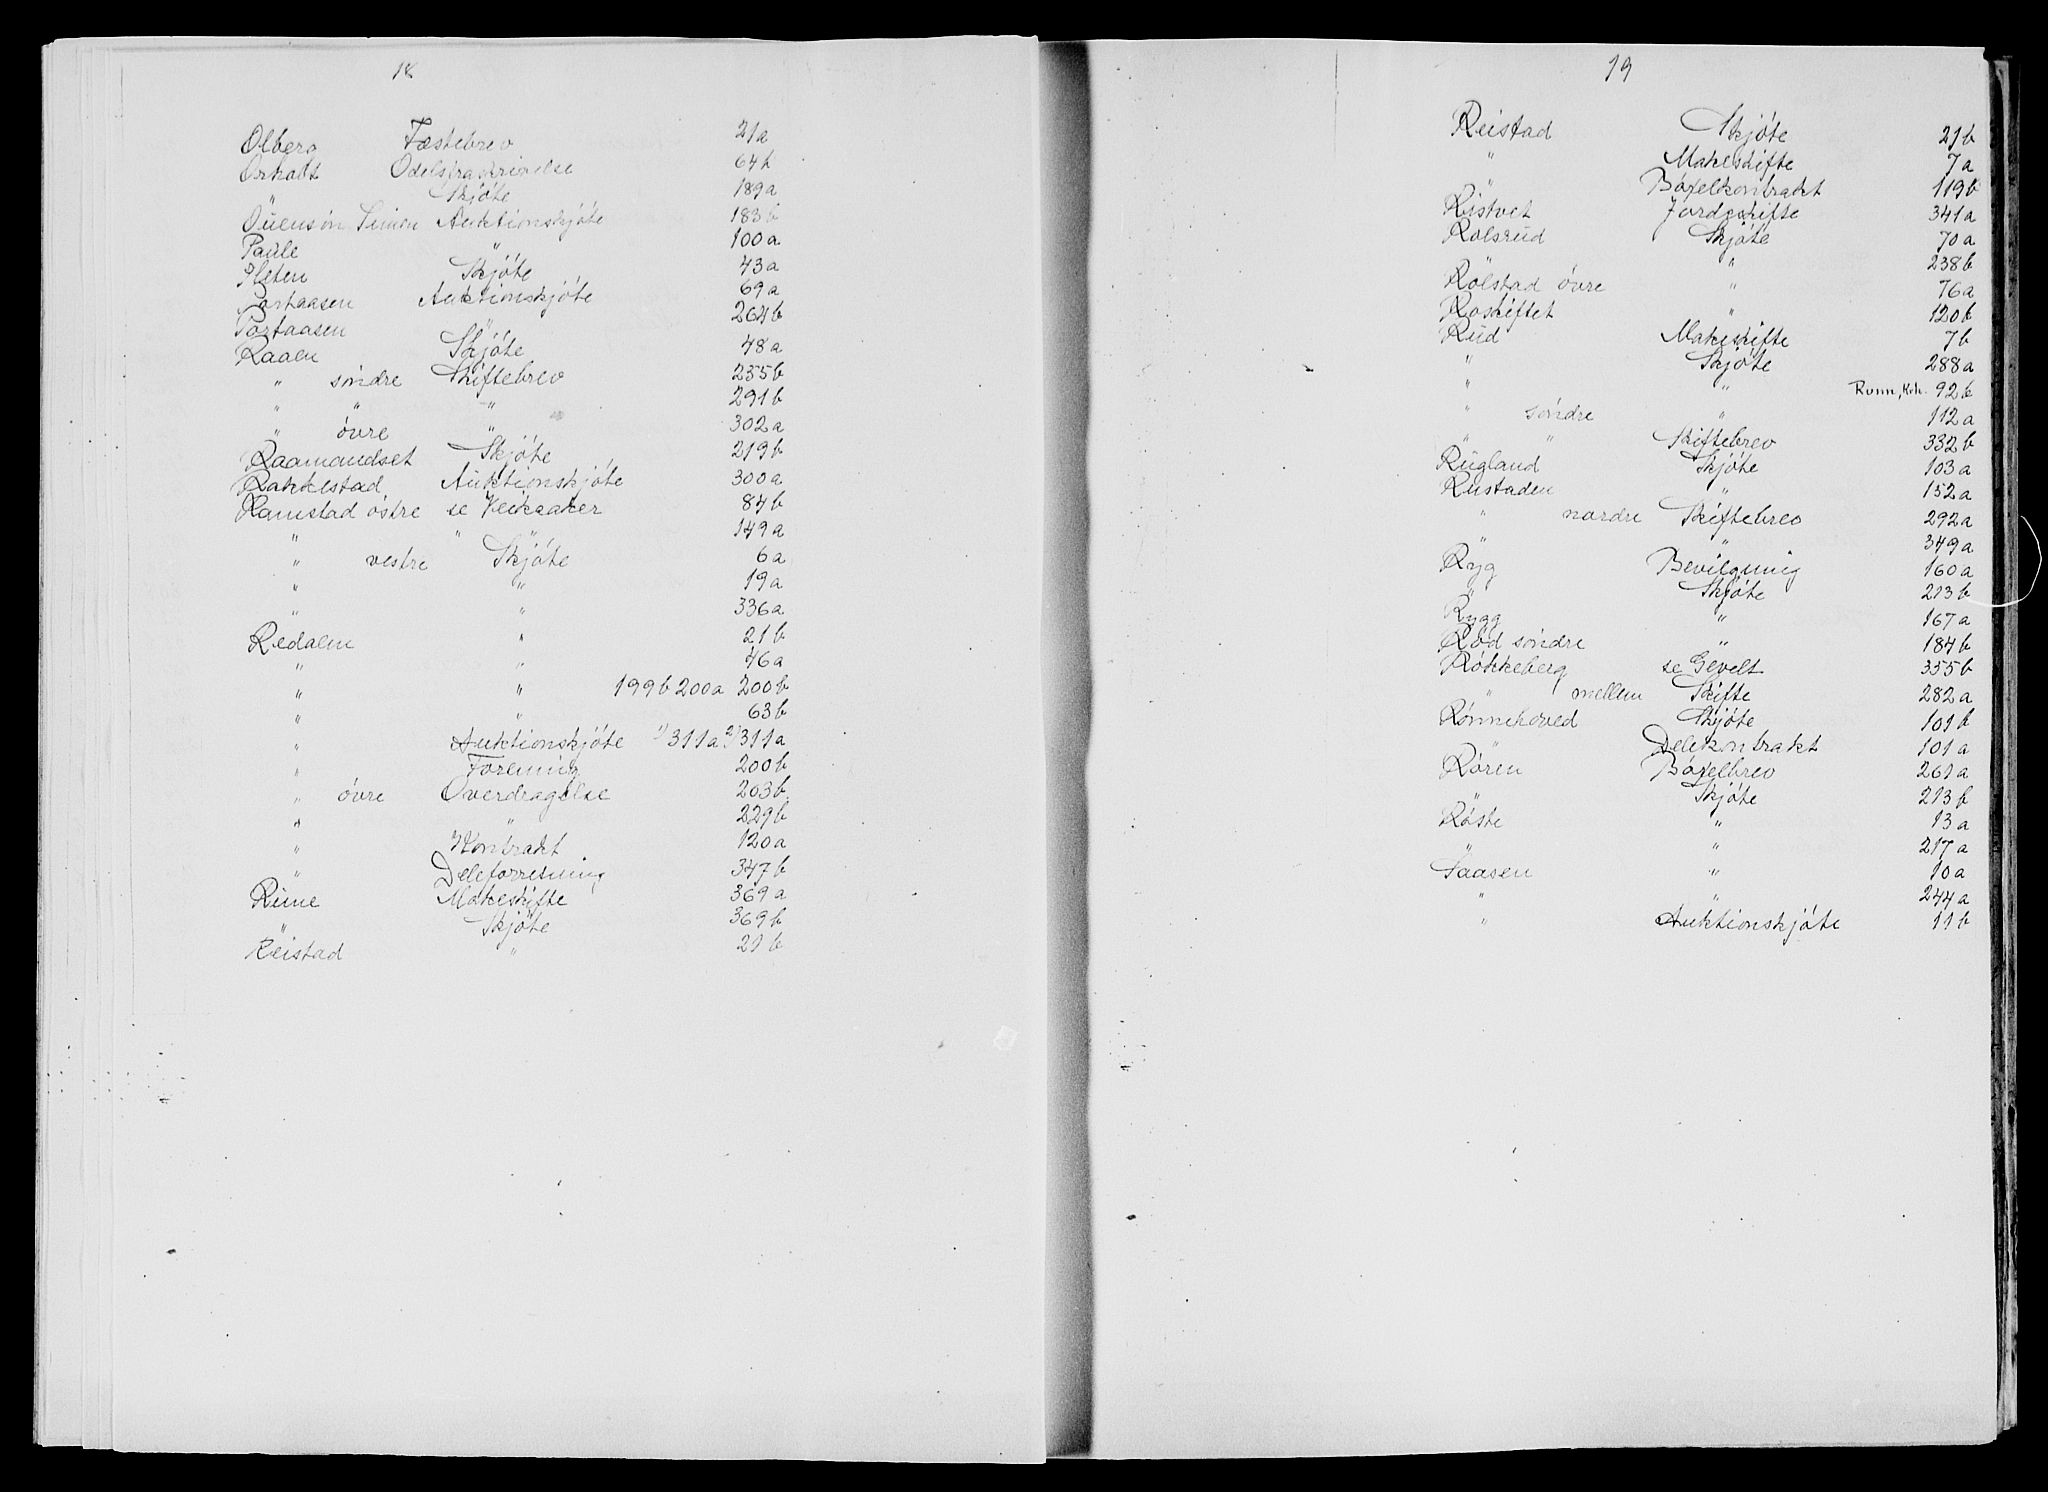 18
Olberg Fæstebrev 21a
Orkalt Odelsfraskrivelse 64b
" Skjöte 189a
Ouensön Simen Auktionskjöte 183b
Paule " 100a
Pleten Skjöte 43a
Portaasen Auktionskjöte 69a
Portaasen " 264b
Raaen Skjöte 48a
" söndre Skiftebrev 235b
" " " 291b
" övre " 302a
Raamandset Skjöte 219b
Rakkestad Auktionskjöte 300a
Ramstad östre se Veikaaker 87b
" " " 149a
" vestre Skjöte 6a
" " 19a
" " 336a
Redalen " 21b
" " 46a
" " 199b 200a 200b
" " 63b
" Auktionskjöte 1) 311a 2) 311a
" Forening 200b
" övre Overdragelse 203b
" " 229b
" Kontrakt 120a
" Deleforretning 347b
Rime Makeskifte 369a
" Skjöte 369b
Reistad " 21b
19
Reistad Skjöte 21b
" Makeskifte 7a
" Böxelkontrakt 119b
Ristvet Jordeskifte 341a
Rolsrud Skjöte 70a
" " 238b
Rolstad övre " 76a
Roskiftet " 120b
Rud Makeskifte 7b
" Skjöte 288a
" " Runn, Krh. 92b
" söndre " 112a
" " Skiftebrev 332b
Rugland Skjöte 103a
Rustaden " 152a
" nordre Skiftebrev 292a
" " 349a
Ryg Bevilgning 160a
" Skjöte 213b
Rygg " 167a
Röd söndre " 184b
Rökkeberg se Gevelt 355b
" mellem Skifte 282a
Rönnehoved Skjöte 101b
" Delekontrakt 101a
Rören Böxelbrev 261a
" Skjöte 213b
Röste " 13a
" " 217a
Saasen " 10a
" " 244a
" Auktionskjöte 11b